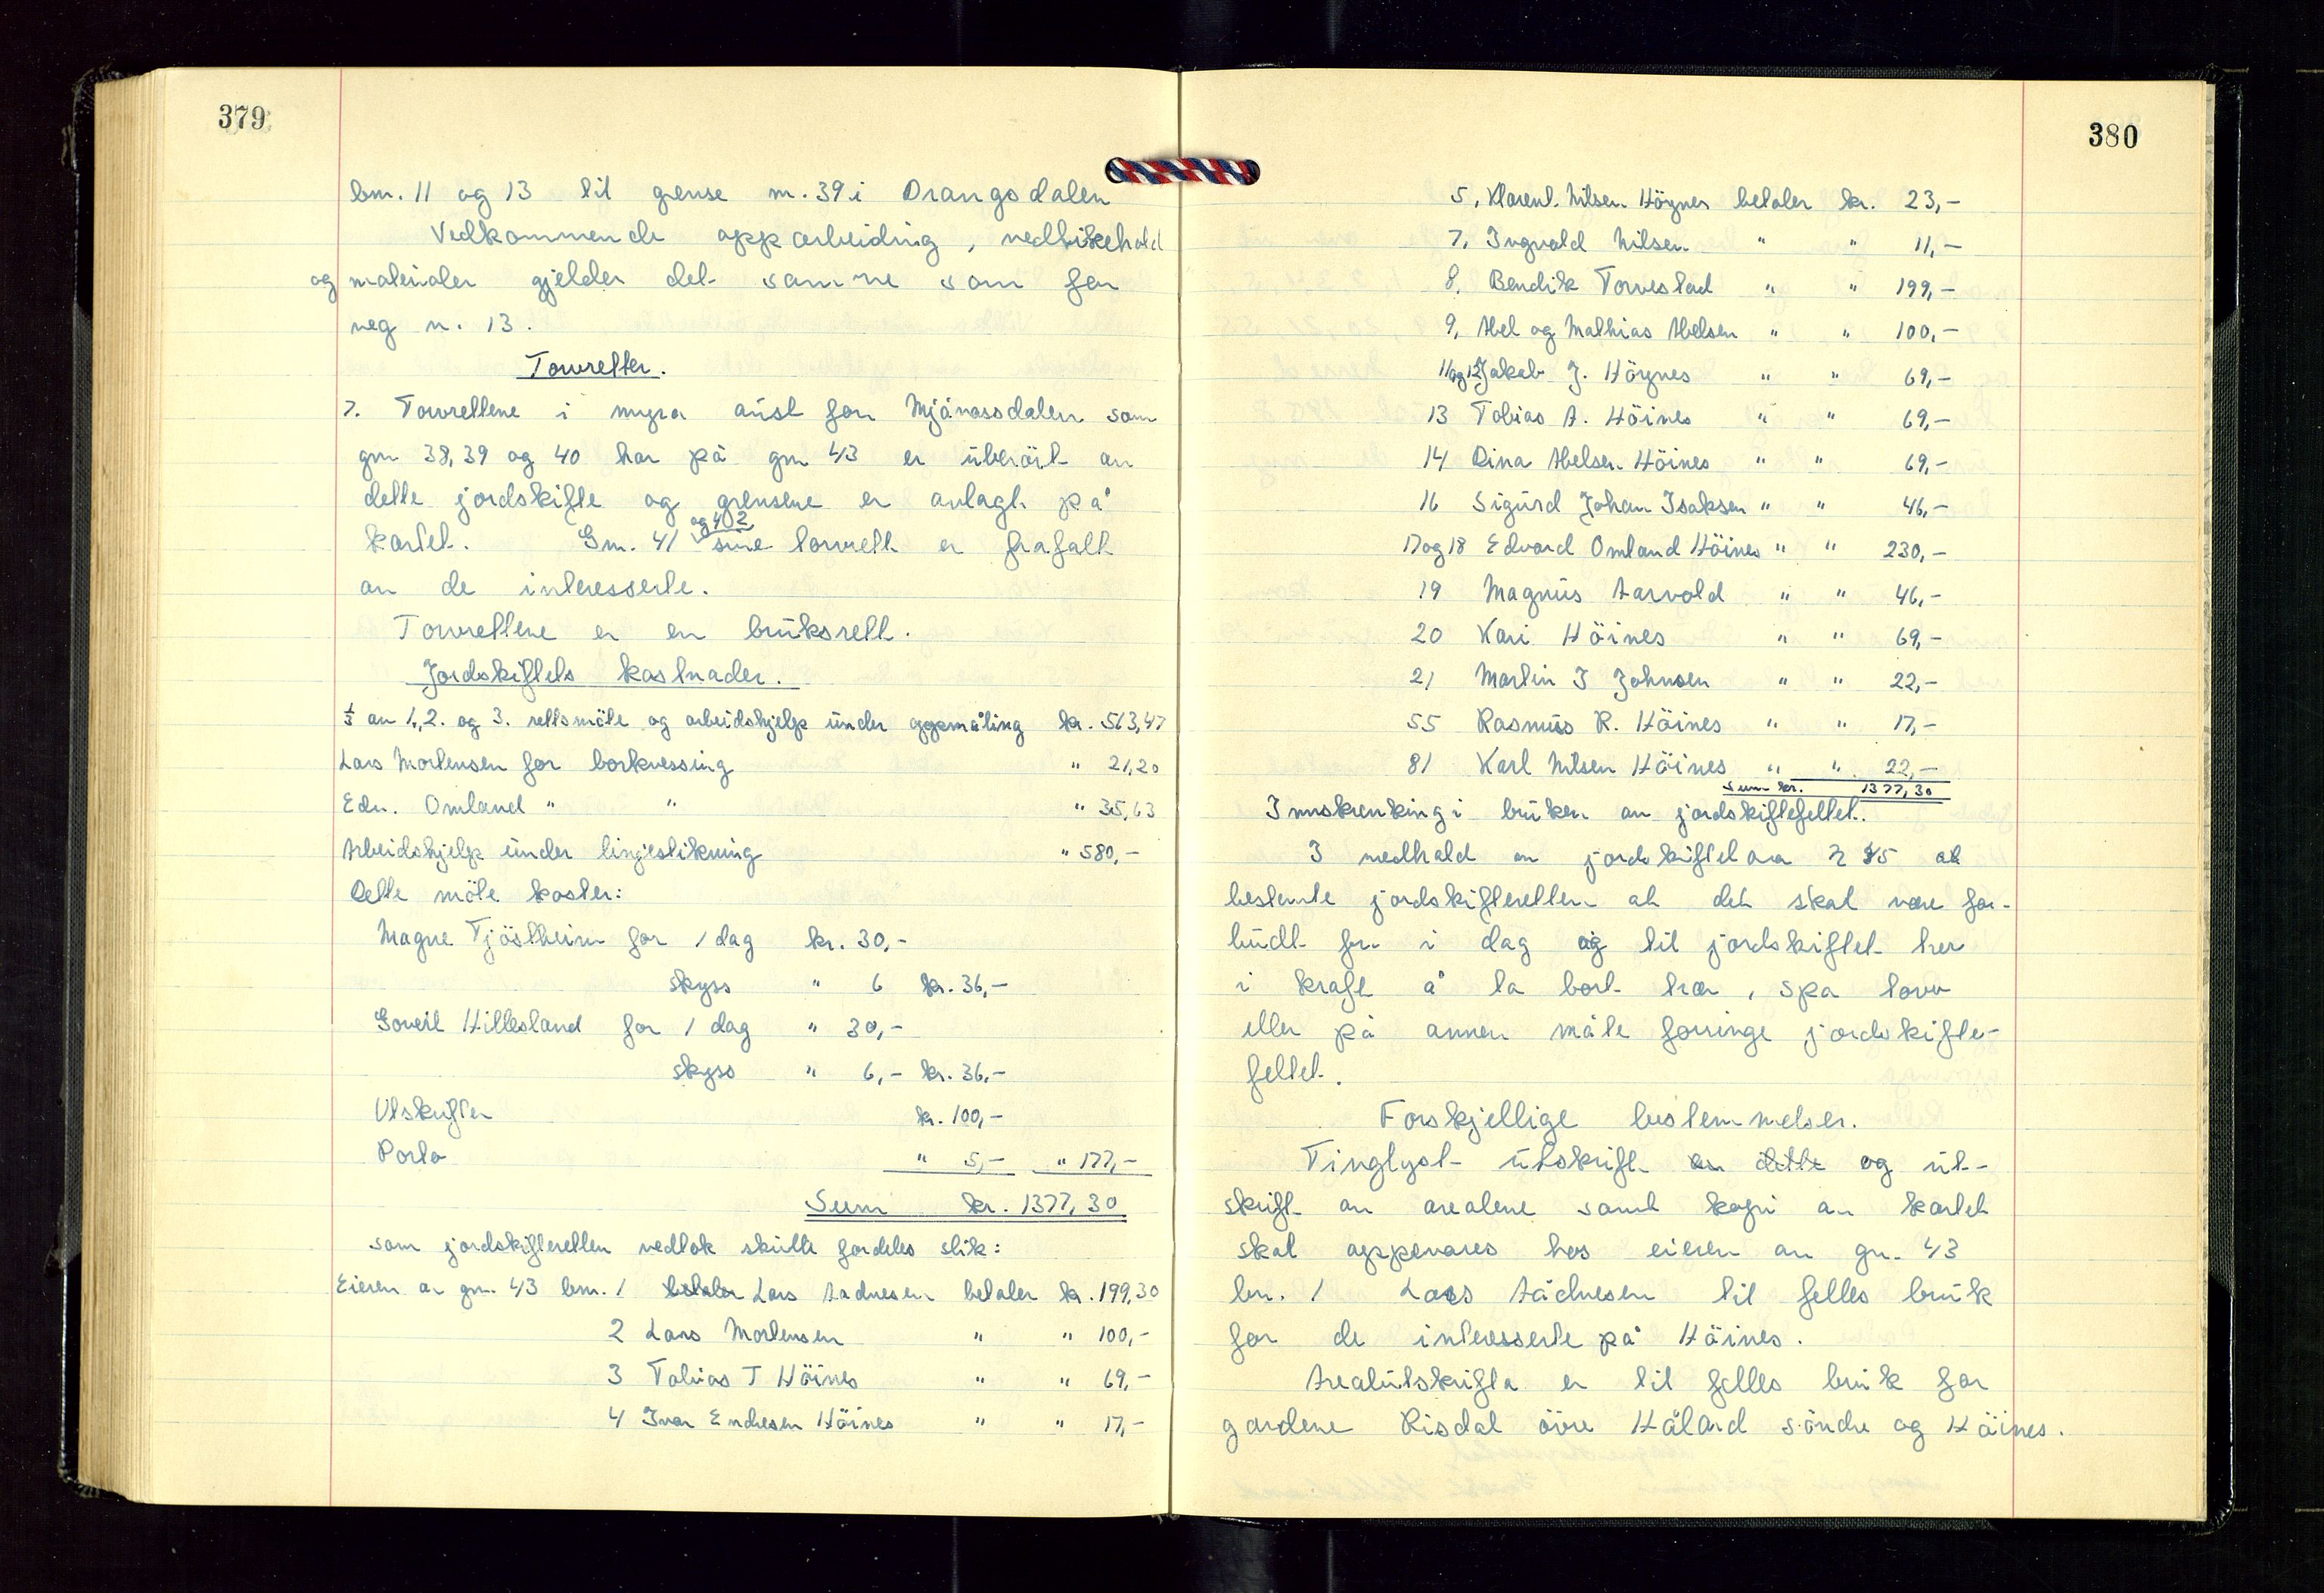 379
bm. 11 og 13 til grense m. 39 i Drangsdalen
Vedkommende opparbeiding, vedlikehold
og materialer gjelder det samme som for
veg n. 13.
Torvretter.
7. Torvrettene i myra aust for Mjåvassdalen som
gm 38, 39 og 40 har på gm 43 er uberört av
dette jordskifte og grensene er avlagt på
kartet. Gm. 41 og 42 sine torvrett er frafalt
av de interesserte.
Torvrettene er en bruksrett.
Jordskiftets kostnader.
1/3 av 1., 2. og 3. rettsmöte og arbeidshjelp under oppmåling kr. 563,47
Lars Mortensen for borkvessing " 21,20
Edv. Omland " " " 35,63
Arbeidshjelp under linjestikning " 580,-
Dette möte koster:
Magne Tjöstheim for 1 dag kr. 30,-
skyss " 6 kr. 36,-
Goveil Hillesland for 1 dag " 30,-
skyss " 6,- kr. 36,-
Utskrifter kr. 100,-
Porto " 5,- " 177,-
Sum kr. 1377,30
som jordskifteretten vedtok skulle fordeles slik:
Eieren av gm. 43 bm. 1 betaler Lars Aadnesen betaler kr. 199,30
2 Lars Mortensen " " 100,-
3 Tobias T Höines " " 69,-
4 Ivar Endresen Höines " " 17,-
380
5, Klarent. Nilsen Högnes betaler kr. 23,-
7, Ingvald Nilsen " " 11,-
8, Bendik Torvestad " " 199,-
9, Abel og Mathias Abelsen " " 100,-
11og12 Jakob J. Högnes " " 69,-
13 Tobias A. Höines " " 69,-
14 Dina Abelsen Höines " " 69,-
16 Sigurd Johan Isaksen " " 46,-
17og18 Edvard Omland Höines " " 230,-
19 Magnus Aarvold " " 46,-
20 Kari Höines " " 69,-
21 Martin I Johnsen " " 22,-
55 Rasmus R. Höines " " 17,-
81 Karl Nilsen Höines " " 22,-
Sum kr. 1377,30
Innskrenking i bruken av jordskiftefeltet.
I medhald av 
bestemte jordskifteretten at det skal være for-
budt fra i dag og til jordskiftet trer
i kraft å ta bort trær, spa torv
eller på annen måte forringe jordskifte-
feltet.
Forskjellige bestemmelser.
Tinglyst utskrift av dette og ut-
skrift av arealene samt kopi av kartet
skal oppevares hos eieren av gn. 43
bn. 1 Lars Aadnesen til felles bruk
for de interesserte på Höines.
Arealutskrifta er til felles bruk for
gardene Risdal övre Håland söndre og Höines.